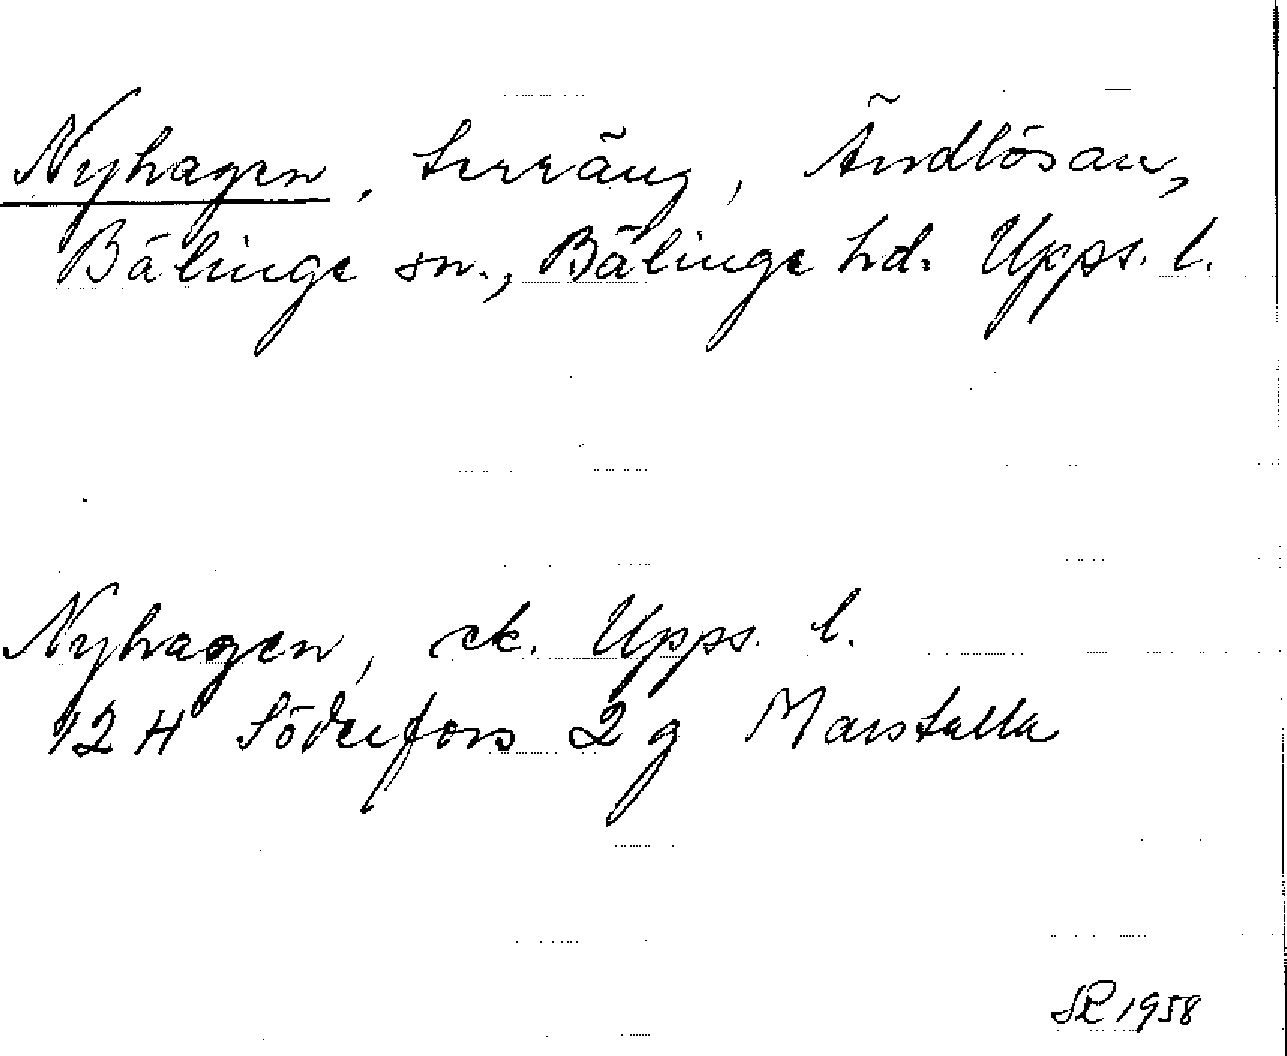 Nyhagen, terräng, Ändlösan,
Bälinge sn., Bälinge hd. Upps. l.
Nyhagen, ek. Upps. l.
12 H Söderfors 2 g Marstalla
SR 1958